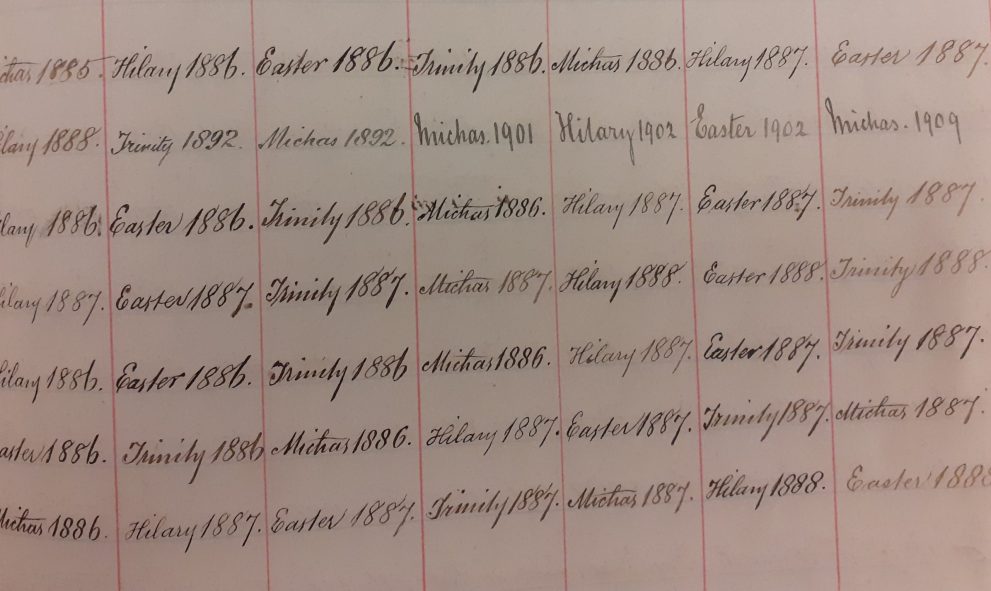 ichas 1885. Hilary 1886. Easter 1886. Trinity 1886. Michas 1886. Hilary 1887. Easter 1887.
ilary 1888. Trinity 1892. Michas 1892. Michas. 1901 Hilary 1902 Easter 1902 Michas. 1909
ilary 1886. Easter 1886. Trinity 1886. Michas 1886. Hilary 1887. Easter 1887. Trinity 1887.
ilary 1887. Easter 1887. Trinity 1887. Michas 1887. Hilary 1888. Easter 1888. Trinity 1888.
ilary 1886. Easter 1886. Trinity 1886 Michas 1886. Hilary 1887. Easter 1887. Trinity 1887.
aster 1886. Trinity 1886 Michas 1886. Hilary 1887. Easter 1887. Trinity 1887. Michas 1887.
Michas 1886. Hilary 1887. Easter 1887. Trinity 1887. Michas 1887. Hilary 1888. Easter 1888